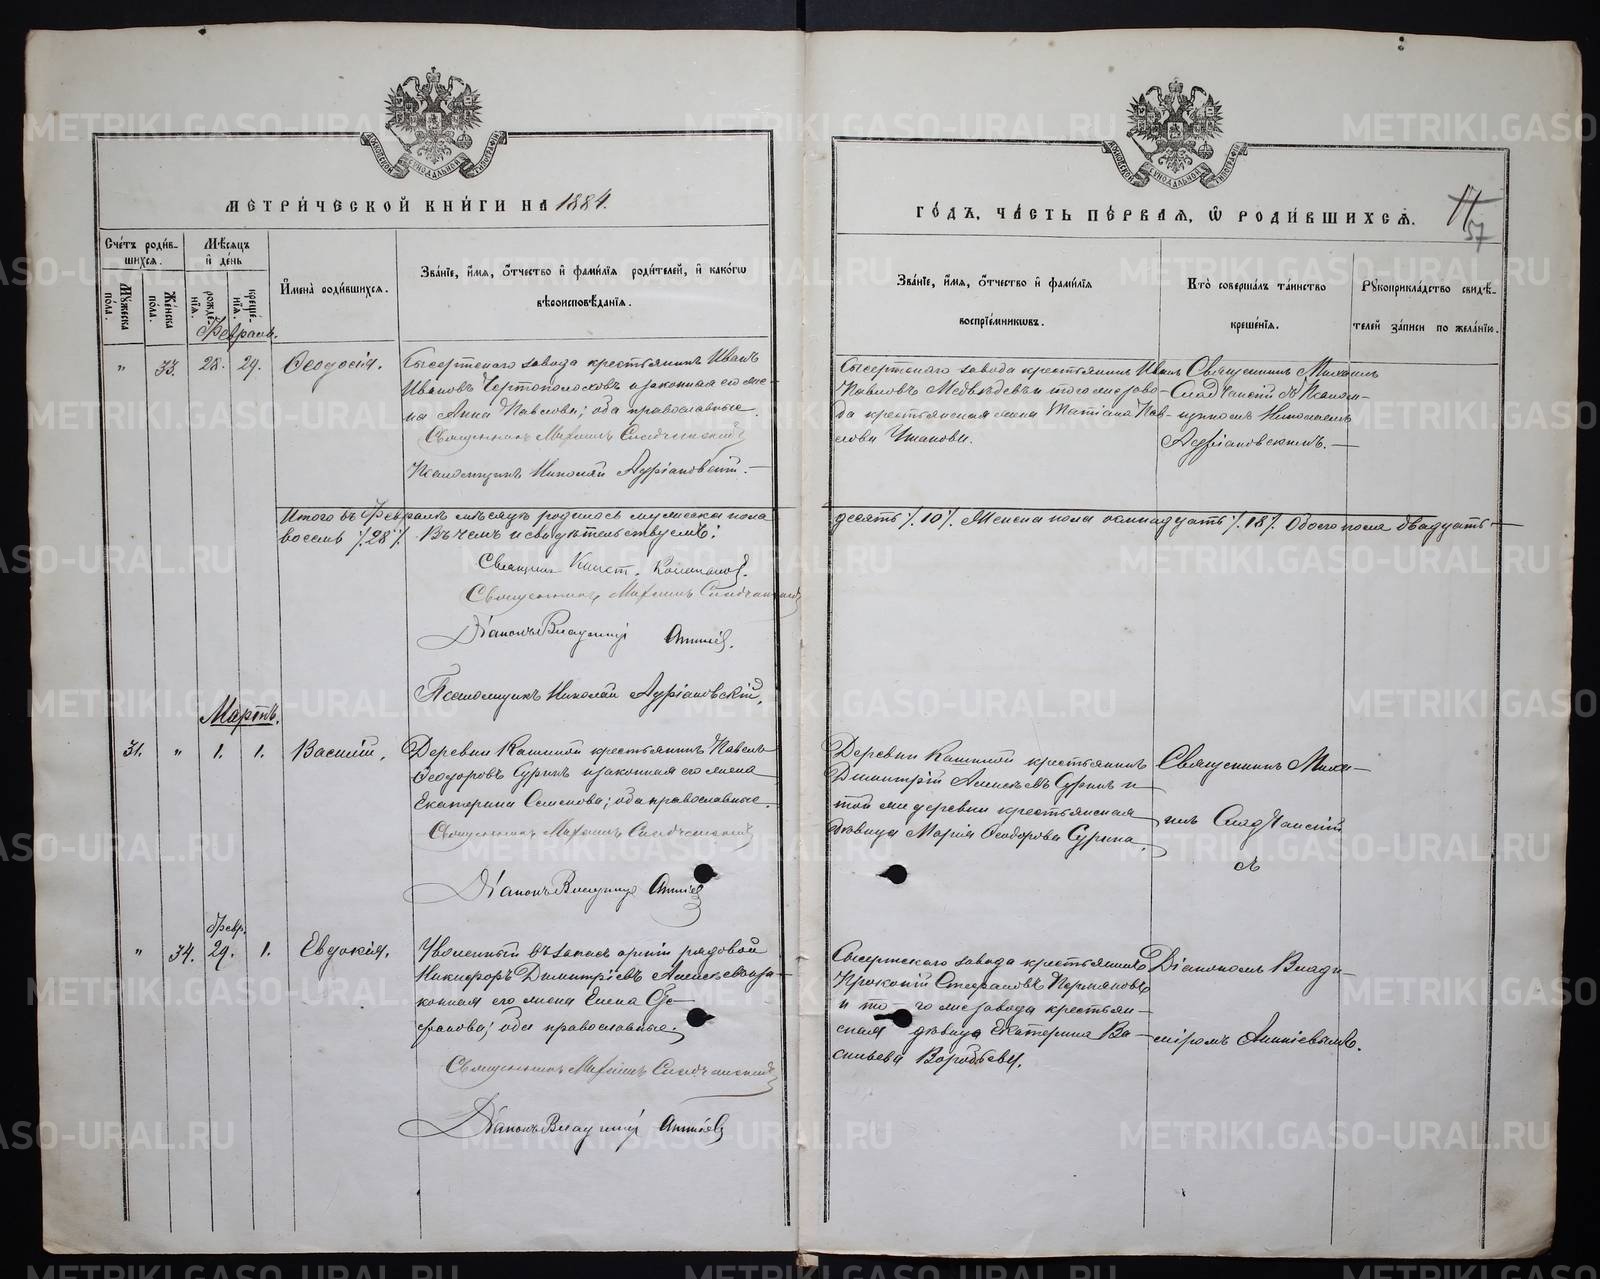 МЕТРИ́ЧЕСКОЙ КНИ́ГИ НА 1884.
ГО́ДЪ, ЧА́СТЬ ПЕ́РВАЯ, Ѡ РОДИ́ВШИХСЯ.
57
Сче́тъ роди́в-
шихся.
Мѣ́сяцъ
и҆ де́нь
Мꙋжеска пола.
Же́нска пола.
рожде́нїя.
креще́нїя.
И҆мена̀ роди́вшихся.
Зва́нїе, и҆́мя, ѻ҆́тчество и҆ фами́лїя роди́телей, и҆ како́гѡ
вѣроисповѣ́данїя.
Зва́нїе, и҆́мя, ѻ҆́тчество и҆ фами́лїя
воспрїе́мникѡвъ.
Кто̀ соверша́лъ та́инство
креще́нїя.
Рꙋкоприкла́дство свидѣ́-
телей за́писи по жела́нїю.
Февраль.
" 33. 28. 29. Ѳеодосія.
Сысертскаго завода крестьянинъ Иванъ
Ивановъ Чертополоховъ и законная его же-
на Анна Павлова; оба православные.
Священникъ Михаилъ Сладчанский
Псаломщикъ Николай Адріановскій.
Сысертскаго завода крестьянинъ Иванъ
Павловъ Медвѣдевъ и того же заво-
да крестьянская жена Татіана Пав-
лова Ушакова.
Священникъ Михаилъ
Сладчанскій съ Псалом-
щикомъ Николаемъ
Адріановскимъ.
Итого въ Февралѣ мѣсяцѣ родилось мужеска пола десять /.10/. Женска пола осмнадцать /.18/. Обоего пола двадцать
восемь /.28/. Въ чемъ и свидѣтельствуемъ:
Священникъ Михаилъ Сладчанский
Діаконъ Владиміръ
Псаломщикъ Николай Адріановскій.
Мартъ.
31. " 1. 1. Василій.
Деревни Кашиной крестьянинъ Павелъ
Ѳеодоровъ Суринъ и законная его жена
Екатерина Семенова; оба православные.
Священникъ Михаилъ Сладчанский
Діаконъ Владиміръ
Деревни Кашиной крестьянинъ
Димитрій Алексѣевъ Суринъ и
той же деревни крестьянская
дѣвица Марія Ѳеодорова Сурина.
Священникъ Миха-
илъ Сладчанскій
съ
Февр.
" 34. 29. 1. Евдокія.
Уволенный въ запасъ арміи рядовой
Никифоръ Димитріевъ и за-
конная его жена Елена Сте-
фанова; оба православные.
Священникъ Михаилъ Сладчанский
Діаконъ Владиміръ
Сысертскаго завода крестьянинъ
Прокопій Стефановъ Пермяковъ
и того же завода крестьян-
ская дѣвица Екатерина Ва-
сильева Воробьева.
Діакономъ Влади-
міромъ